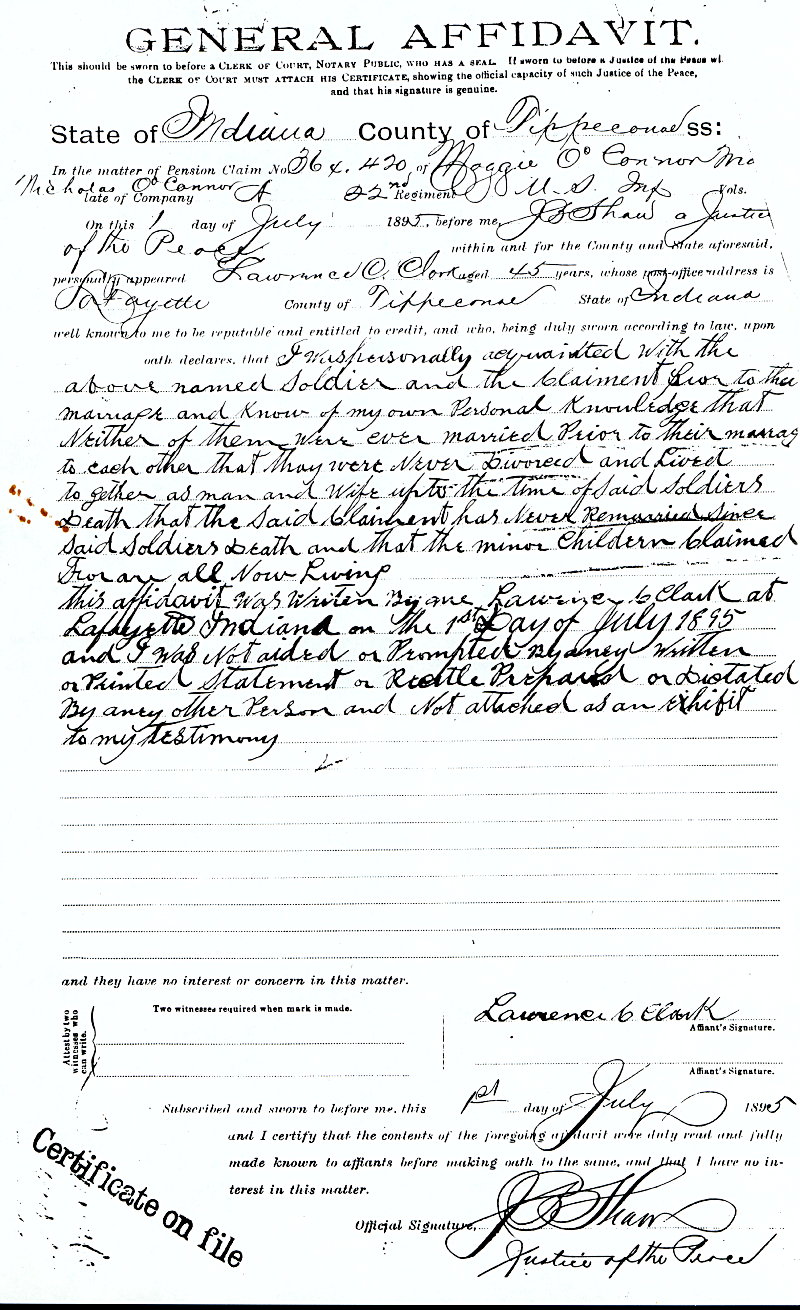 GENERAL AFFIDAVIT.
This should be sworn to before a CLERK OF COURT, NOTARY PUBLIC, WHO HAS A SEAL. If sworn to before a Justice of the Peace wi
the CLERK OF COURT MUST ATTACH HIS CERTIFICATE, showing the official capacity of such Justice of the Peace,
and that his signature is genuine.
State of Indiana County of Tippecanoe ss:
In the matter of Pension Claim No. 364.420 of Maggie O'Connor
Nicholas O'Connor
late of Company A 22nd Regiment U.S. Inf Vols.
On this 1 day of July 1895, before me, J B Shaw a Justice
of the Peace within and for the County and State aforesaid,
personally appeared Lawrence C. Clark aged 45 years, whose post-office address is
LaFayette County of Tippecanoe State of Indiana
well known to me to be reputable and entitled to credit, and who, being duly sworn according to law, upon
oath declares, that I was personally acquainted with the
above named Soldier and the Claiment Prior to their
marriage and Know of my own Personal Knowledge that
Neither of them were ever married Prior to their marrag
to each other that thay were Never Divorced and Lived
to gether as man and Wife upto the time of Said Soldiers
Death that the Said Claiment has Never Remarried since
Said Soldiers Death and that the minor Childern Claimed
For are all Now Living
this affidavit Was Writen By me Lawrence C Clark at
Lafayette Indiana on the 1st Day of July 1895
and I Was Not aided or Prompted By aney Written
or Printed Statement or Prepared or Dictated
By aney other Person and Not attached as an exhibit
to my testimony
and they have no interest or concern in this matter.
Two witnesses required when mark is made.
Attest by two
witnesses who
can write.
Lawrence C Clark
Affiant's Signature.
Affiant's Signature.
Subscribed and sworn to before me, this 1st day of July 1895
and I certify that the contents of the foregoing affidavit were duly read and fully
made known to affiants before making oath to the same, and that I have no in-
terest in this matter.
Certificate on file
Official Signature, J B Shaw
Justice of the Peace